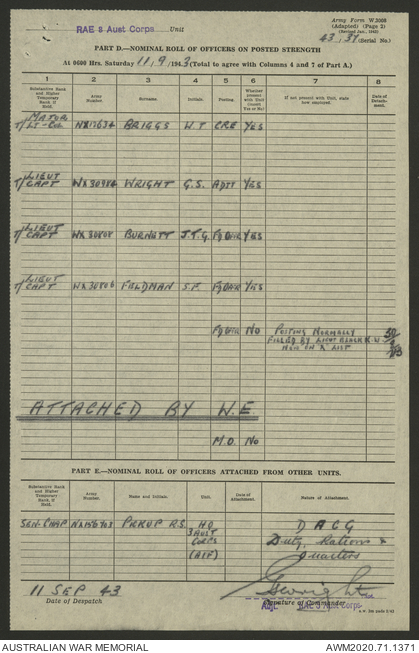 Army Form W.3008
(Adapted) (Page 2)
(Revised Jan., 1943)
RAE 5 Aust Corps Unit
43/37 (Serial No.)
PART D.—NOMINAL ROLL OF OFFICERS ON POSTED STRENGTH
At 0600 Hrs. Saturday 11/9/1943 (Total to agree with Columns 4 and 7 of Part A.)
1 2 3 4 5 6 7 8
Substantive Rank and Higher Temporary Rank, if Held. Army Number. Surname. Initials. Posting. Whether present with Unit (insert Yes or No) If not present with Unit, state how employed. Date of Detachment.
MAJOR
T/LT-COL BRIGGS W.T CRE YES
LIEUT
T/CAPT WRIGHT G.S. ADJT YES
LIEUT
T/CAPT BURNETT J.T.G. YES
LIEUT
T/CAPT FELDMAN S.F. YES
NO POSTING NORMALLY
FILLED BY LIEUT BLACK K.W.
NOW ON X LIST
ATTACHED BY W.E.
M.O. NO
PART E.—NOMINAL ROLL OF OFFICERS ATTACHED FROM OTHER UNITS.
Substantive Rank and Higher Temporary Rank, if Held. Army Number. Name and Initials. Unit. Date of Attachment. Nature of Attachment.
SEN. CHAP R.S. HQ DACG
AUST Duty, Rations &
CORPS Quarters
(AIF)
11 SEP 43
Date of Despatch
Signature of Commander
Adjt RAE 5 Aust Corps
AUSTRALIAN WAR MEMORIAL AWM2020.71.1371